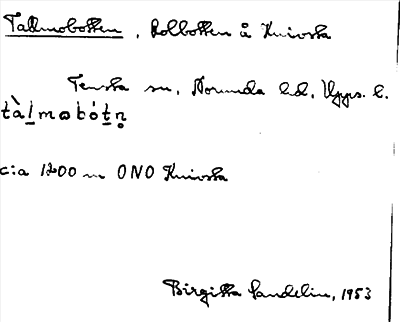 Tallmobotten, Rolbotten å Knivsta
Tensta sn, Norunda hd, Upps. l.
tàlmɷbótn̥
c:a 1200 m ONO Knivsta
Birgitta Sandelin, 1953